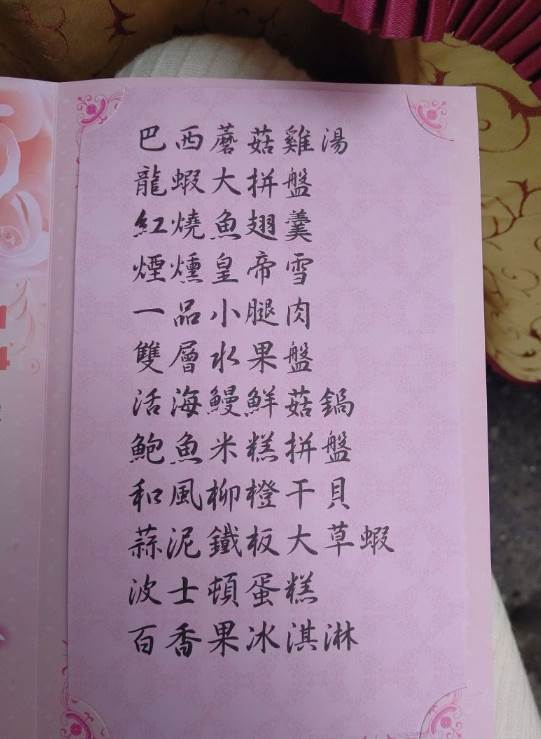 巴西蘑菇雞湯
龍蝦大拼盤
紅燒魚翅羹
煙燻皇帝雪
一品小腿肉
雙層水果盤
活海鰻鮮菇鍋
鮑魚米糕拼盤
和風柳橙干貝
蒜泥鐵板大草蝦
波士頓蛋糕
百香果冰淇淋